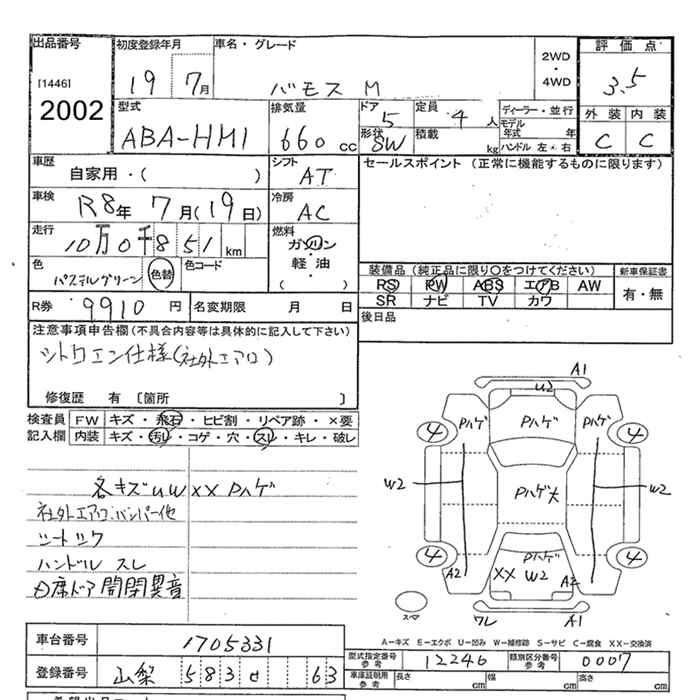 出品番号 初度登録年月 車名・グレード 2WD・4WD 評価点
[1446] 19 7月 バモス M 3.5
2002 型式 排気量 ドア 定員 ディーラー・並行 外装 内装
ABA-HM1 660cc 5 4人 モデル年式 年 C C
形状 SW 積載 kg ハンドル 左・右
車歴 自家用・( ) シフト AT セールスポイント (正常に機能するものに限ります)
車検 R8年 7月(19日) 冷房 AC
走行 10万0千851km 燃料 ガソリン
軽・油
( )
色 パステルグリーン 色替 色コード 装備品 (純正品に限り○をつけてください) 新車保証書
PS PW ABS エアB AW 有・無
SR ナビ TV カワ
R券 9910円 名変期限 月 日 後日品
注意事項申告欄(不具合内容等は具体的に記入して下さい)
シトロエン仕様(社外エアロ)
修復歴 有 [箇所 ]
検査員記入欄 FW キズ・飛石・ヒビ割・リペア跡・×要
内装 キズ・汚レ・コゲ・穴・スレ・キレ・破レ
各キズUW XX Pハゲ
社外エアロ・バンパー他
ハンドル スレ
席ドア 開閉異音
A1
U2
Pハゲ Pハゲ Pハゲ
4 4
W2 Pハゲ大 W2
4 4
Pハゲ
A2 XX W2 A2
スペア ワレ A1
A-キズ E-エクボ U-凹み W-補修跡 S-サビ C-腐食 XX-交換済
車台番号 1705331
型式指定番号 参考 12246 類別区分番号 参考 0007
登録番号 山梨 583 63
車庫証明用 参考 長さ cm 幅 cm 高さ cm